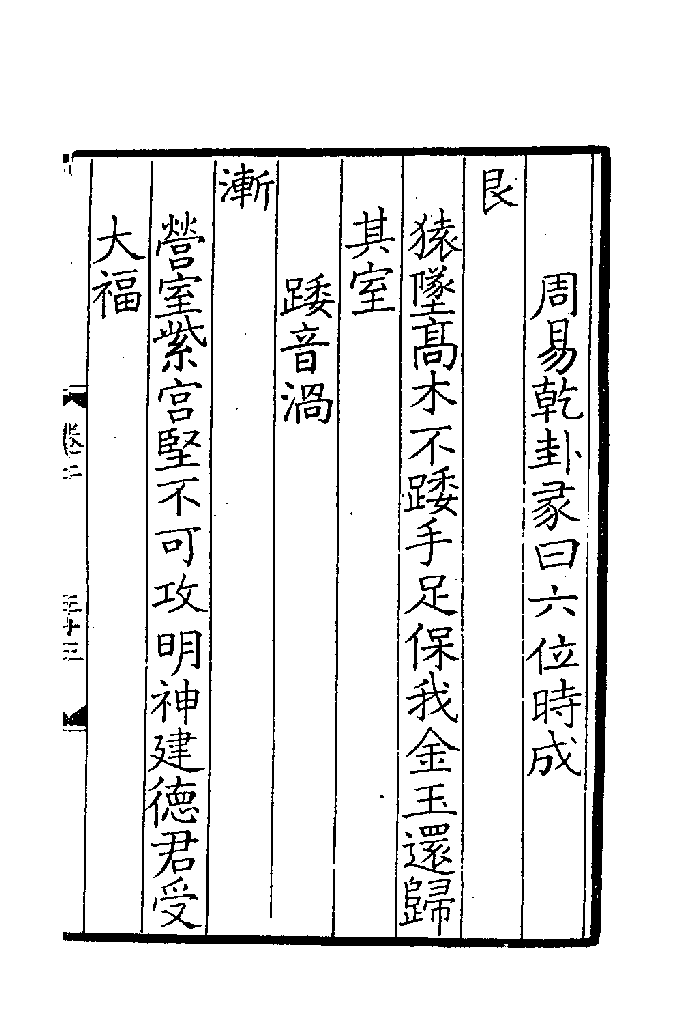 周易乾卦彖曰六位時成
艮
猿墜髙木不踒手足保我金玉還歸
其室
踒音渦
漸
營室紫宫堅不可攻明神建德君受
大福